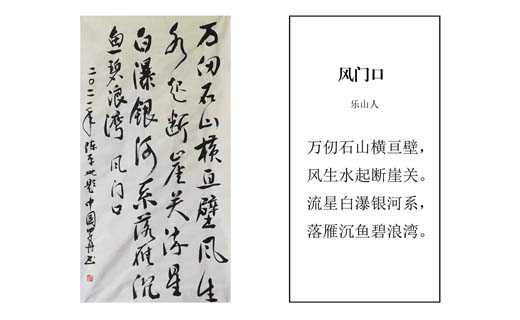 万仞石山横亘壁风生
水起断崖关流星
白瀑银河系落雁沉
鱼碧浪湾 风门口
二〇二一年 陈 题 中国 书
风门口
乐山人
万仞石山横亘壁，
风生水起断崖关。
流星白瀑银河系，
落雁沉鱼碧浪湾。